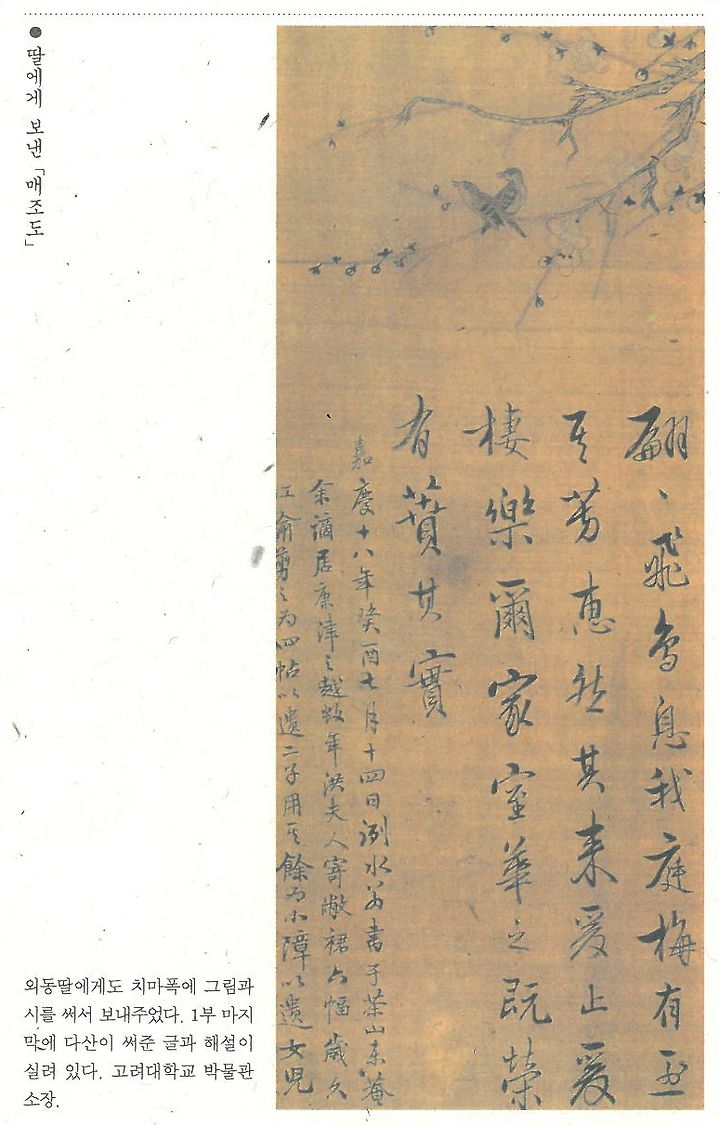 ● 딸에게 보낸 「매조도」
翩、飛鳥息我庭梅有烈
其芳惠然其来爰止爰
棲樂爾家室華之旣榮
有蕡其實
嘉慶十八年癸酉七月十四日洌水翁書于茶山東菴
余謫居康津之越數年洪夫人寄敝裙六幅歲久
紅渝剪之为四帖以遺二子用其餘为小障以遺女兒
외동딸에게도 치마폭에 그림과
시를 써서 보내주었다. 1부 마지
막에 다산이 써준 글과 해설이
실려 있다. 고려대학교 박물관
소장.